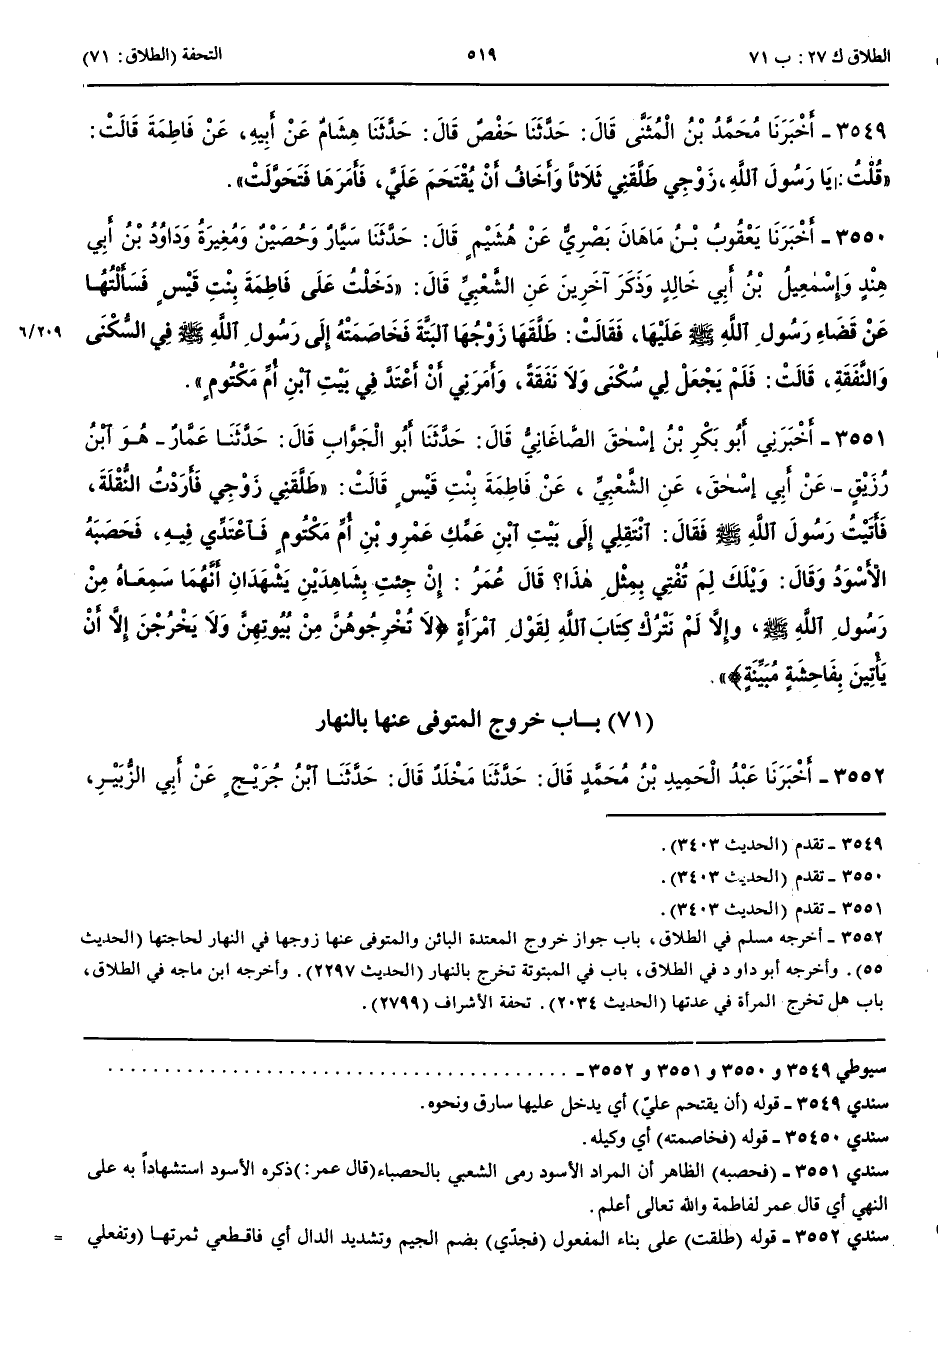 الطلاق ك ٢٧: ب ٧١ ٥١٩ التحفة (الطلاق: ٧١)
٣٥٤٩ ـ أَخْبَرَنَا مُحَمَّدُ بْنُ الْمُثَنَّى قَالَ: حَدَّثَنَا حَفْصٌ قَالَ: حَدَّثَنَا هِشَامٌ عَنْ أَبِيهِ، عَنْ فَاطِمَةَ قَالَتْ:
«قُلْتُ: يَا رَسُولَ ٱللَّهِ، زَوْجِي طَلَّقَنِي ثَلاَثاً وَأَخَافُ أَنْ يُقْتَحَمَ عَلَيَّ، فَأَمَرَهَا فَتَحَوَّلَتْ».
٣٥٥٠ ـ أَخْبَرَنَا يَعْقُوبُ بْنُ مَاهَانَ بَصْرِيٌّ عَنْ هُشَيْمٍ قَالَ: حَدَّثَنَا سَيَّارٌ وَحُصَيْنٌ وَمُغِيرَةُ وَدَاوُدُ بْنُ أَبِي
هِنْدٍ وَإِسْمٰعِيلُ بْنُ أَبِي خَالِدٍ وَذَكَرَ آخَرِينَ عَنِ الشَّعْبِيِّ قَالَ: «دَخَلْتُ عَلَى فَاطِمَةَ بِنْتِ قَيْسٍ فَسَأَلْتُهَا
عَنْ قَضَاءِ رَسُولِ ٱللَّهِ ﷺ عَلَيْهَا، فَقَالَتْ: طَلَّقَهَا زَوْجُهَا ٱلبَتَّةَ فَخَاصَمَتْهُ إِلَى رَسُولِ ٱللَّهِ ﷺ فِي السُّكْنَى ٦/٢٠٩
وَالنَّفَقَةِ، قَالَتْ: فَلَمْ يَجْعَلْ لِي سُكْنَى وَلاَ نَفَقَةً، وَأَمَرَنِي أَنْ أَعْتَدَّ فِي بَيْتِ ٱبْنِ أُمِّ مَكْتُومٍ».
٣٥٥١ ـ أَخْبَرَنِي أَبُو بَكْرِ بْنُ إِسْحٰقَ الصَّاغَانِيُّ قَالَ: حَدَّثَنَا أَبُو الْجَوَّابِ قَالَ: حَدَّثَنَا عَمَّارٌ ـ هُوَ ٱبْنُ
رُزَيْقٍ ـ عَنْ أَبِي إِسْحٰقَ، عَنِ الشَّعْبِيِّ، عَنْ فَاطِمَةَ بِنْتِ قَيْسٍ قَالَتْ: «طَلَّقَنِي زَوْجِي فَأَرَدْتُ النُّقْلَةَ،
فَأَتَيْتُ رَسُولَ ٱللَّهِ ﷺ فَقَالَ: ٱنْتَقِلِي إِلَى بَيْتِ ٱبْنِ عَمِّكِ عَمْرِو بْنِ أُمِّ مَكْتُومٍ فَٱعْتَدِّي فِيهِ، فَحَصَبَهُ
الْأَسْوَدُ وَقَالَ: وَيْلَكَ لِمَ تُفْتِي بِمِثْلِ هٰذَا؟ قَالَ عُمَرُ : إِنْ جِئْتِ بِشَاهِدَيْنِ يَشْهَدَانِ أَنَّهُمَا سَمِعَاهُ مِنْ
رَسُولِ ٱللَّهِ ﷺ، وَإِلَّا لَمْ نَتْرُكْ كِتَابَ ٱللَّهِ لِقَوْلِ ٱمْرَأَةٍ ﴿لَا تُخْرِجُوهُنَّ مِنْ بُيُوتِهِنَّ وَلَا يَخْرُجْنَ إِلَّا أَنْ
يَأْتِينَ بِفَاحِشَةٍ مُبَيِّنَةٍ﴾».
(٧١) بـاب خروج المتوفى عنها بالنهار
٣٥٥٢ ـ أَخْبَرَنَا عَبْدُ الْحَمِيدِ بْنُ مُحَمَّدٍ قَالَ: حَدَّثَنَا مَخْلَدٌ قَالَ: حَدَّثَنَا ٱبْنُ جُرَيْجٍ عَنْ أَبِي الزُّبَيْرِ،
٣٥٤٩ ـ تقدم (الحديث ٣٤٠٣).
٣٥٥٠ ـ تقدم (الحديث ٣٤٠٣).
٣٥٥١ ـ تقدم (الحديث ٣٤٠٣).
٣٥٥٢ ـ أخرجه مسلم في الطلاق، باب جواز خروج المعتدة البائن والمتوفى عنها زوجها في النهار لحاجتها (الحديث
٥٥). وأخرجه أبو داود في الطلاق، باب في المبتوتة تخرج بالنهار (الحديث ٢٢٩٧). وأخرجه ابن ماجه في الطلاق،
باب هل تخرج المرأة في عدتها (الحديث ٢٠٣٤). تحفة الأشراف (٢٧٩٩).
سيوطي ٣٥٤٩ و ٣٥٥٠ و ٣٥٥١ و ٣٥٥٢ ـ ........................................
سندي ٣٥٤٩ ـ قوله (أن يقتحم عليّ) أي يدخل عليها سارق ونحوه.
سندي ٣٥٤٥٠ ـ قوله (فخاصمته) أي وكيله.
سندي ٣٥٥١ ـ (فحصبه) الظاهر أن المراد الأسود رمى الشعبي بالحصباء (قال عمر:) ذكره الأسود استشهاداً به على
النهي أي قال عمر لفاطمة والله تعالى أعلم.
سندي ٣٥٥٢ ـ قوله (طلقت) على بناء المفعول (فجدّي) بضم الجيم وتشديد الدال أي فاقطعي ثمرتها (وتفعلي =